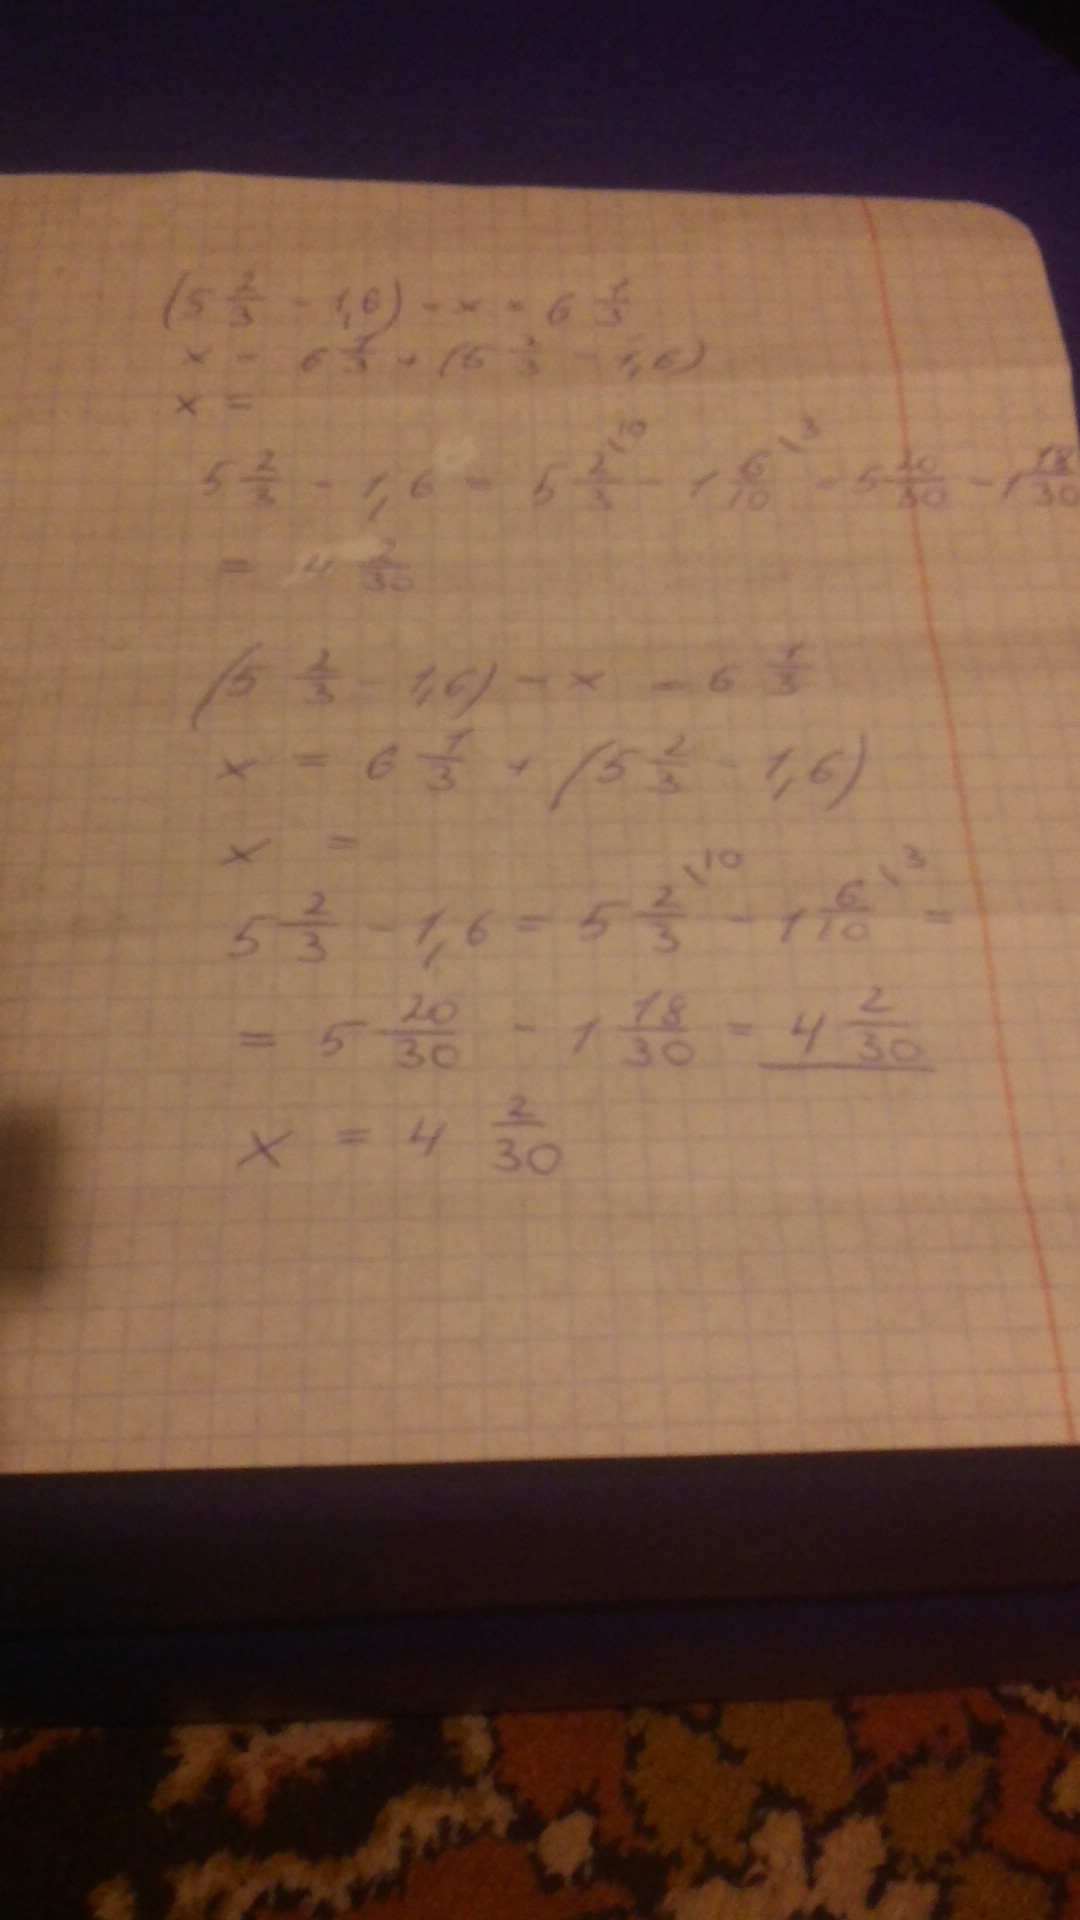 (5 2/3 - 1,6) - x = 6 1/3
x = 6 1/3 + (6 2/3 - 1,6)
x =
5 2/3 - 1,6 = 5 2/3 \10 - 1 6/10 \3 = 5 20/30 - 1 18/30
= 4 2/30
(5 2/3 - 1,6) - x = 6 1/3
x = 6 1/3 + (5 2/3 - 1,6)
x =
5 2/3 - 1,6 = 5 2/3 \10 - 1 6/10 \3 =
= 5 20/30 - 1 18/30 = 4 2/30
x = 4 2/30